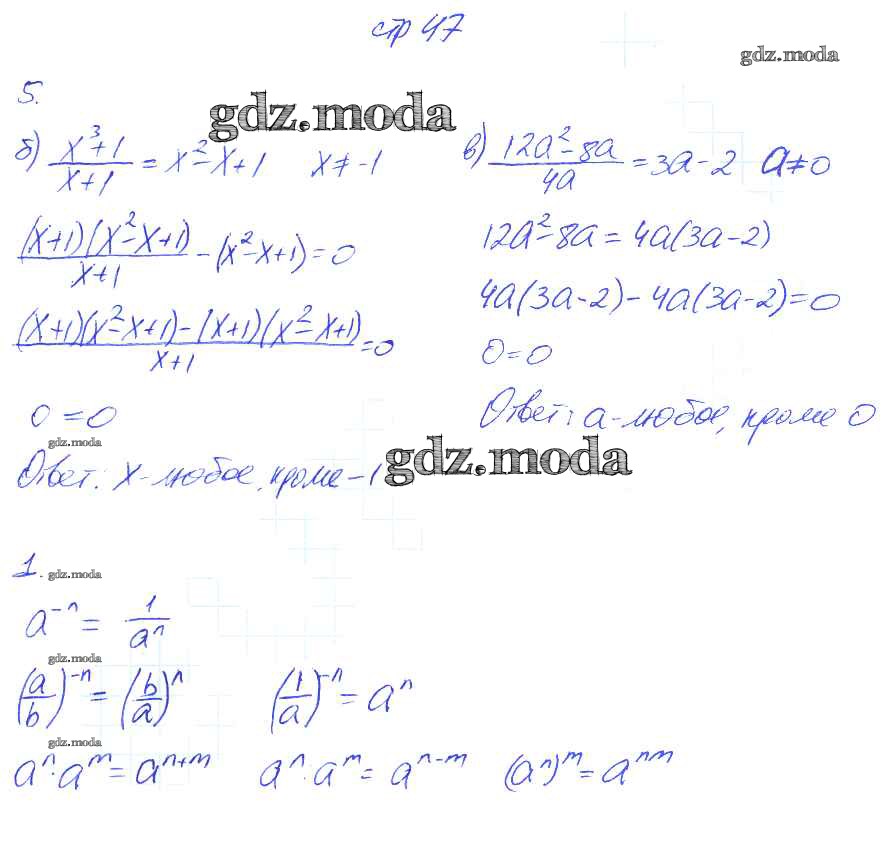 стр 47
gdz.moda
5.
gdz.moda
б) (x³+1)/(x+1) = x²-x+1 x≠-1
((x+1)(x²-x+1))/(x+1) - (x²-x+1)=0
((x+1)(x²-x+1)-(x+1)(x²-x+1))/(x+1) =0
0=0
gdz.moda
Ответ: x-любое, кроме -1
в) (12a²-8a)/(4a) = 3a-2 a≠0
12a²-8a=4a(3a-2)
4a(3a-2)-4a(3a-2)=0
0=0
Ответ: a-любое, кроме 0
gdz.moda
1.
gdz.moda
a⁻ⁿ = 1/aⁿ
gdz.moda
(a/b)⁻ⁿ = (b/a)ⁿ (1/a)⁻ⁿ = aⁿ
gdz.moda
aⁿ·aᵐ = aⁿ⁺ᵐ aⁿ:aᵐ = aⁿ⁻ᵐ (aⁿ)ᵐ = aⁿᵐ